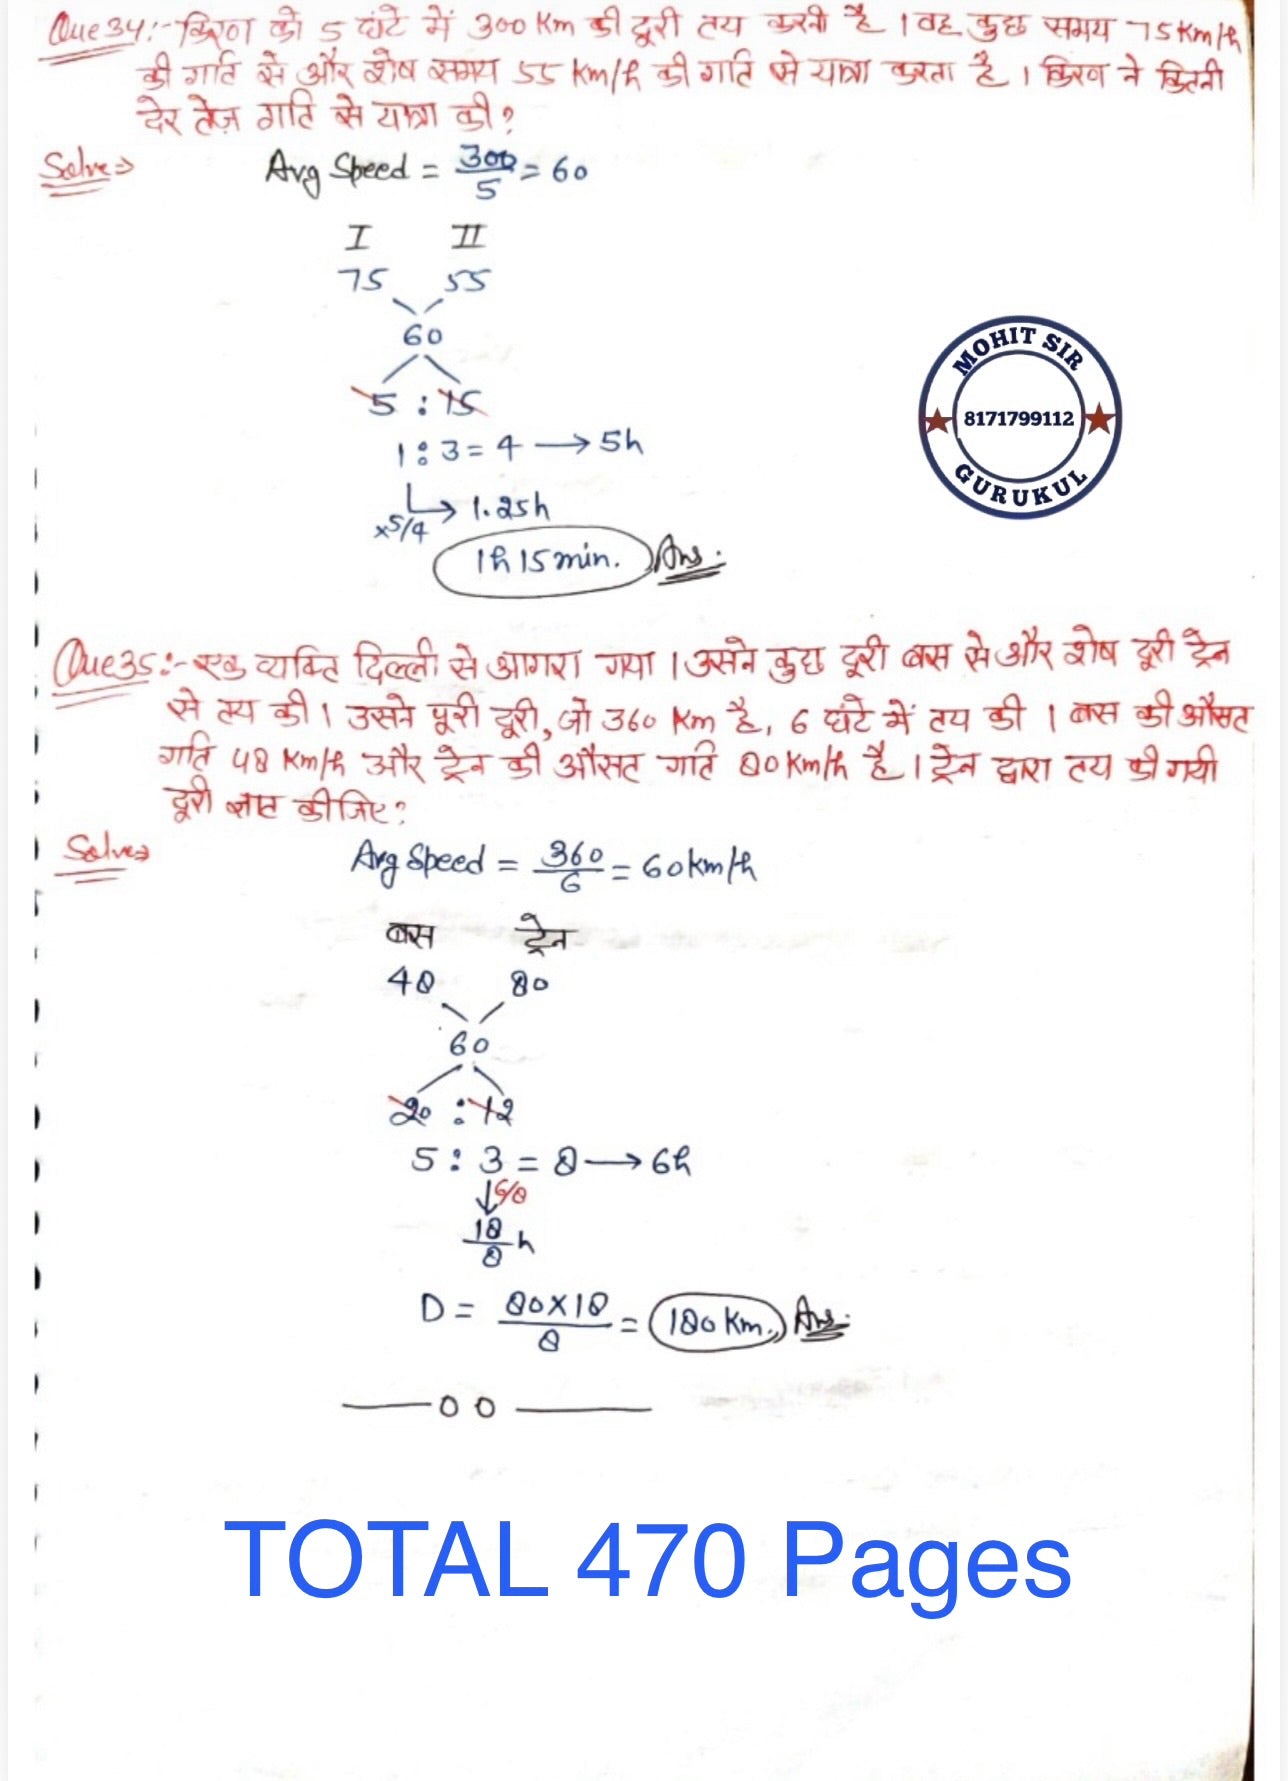 Que 34:- किरण को 5 घंटे में 300 Km की दूरी तय करनी है । वह कुछ समय 75 Km/h
की गति से और शेष समय 55 Km/h की गति से यात्रा करता है । किरण ने कितनी
देर तेज़ गति से यात्रा की ?
Solve⇒
Avg Speed = 300/5 = 60
I II
75 55
60
5 : 15
1 : 3 = 4 → 5h
×5/4 → 1.25h
1h 15 min. Ans.
MOHIT SIR
8171799112
GURUKUL
Que 35:- एक व्यक्ति दिल्ली से आगरा गया । उसने कुछ दूरी बस से और शेष दूरी ट्रेन
से तय की । उसने पूरी दूरी, जो 360 Km है, 6 घंटे में तय की । बस की औसत
गति 48 Km/h और ट्रेन की औसत गति 80 Km/h है । ट्रेन द्वारा तय की गयी
दूरी ज्ञात कीजिए ?
Solve⇒
Avg Speed = 360/6 = 60 km/h
बस ट्रेन
48 80
60
20 : 12
5 : 3 = 8 → 6h
↓ 6/8
18/8 h
D = 80×18/8 = 180 Km. Ans.
TOTAL 470 Pages